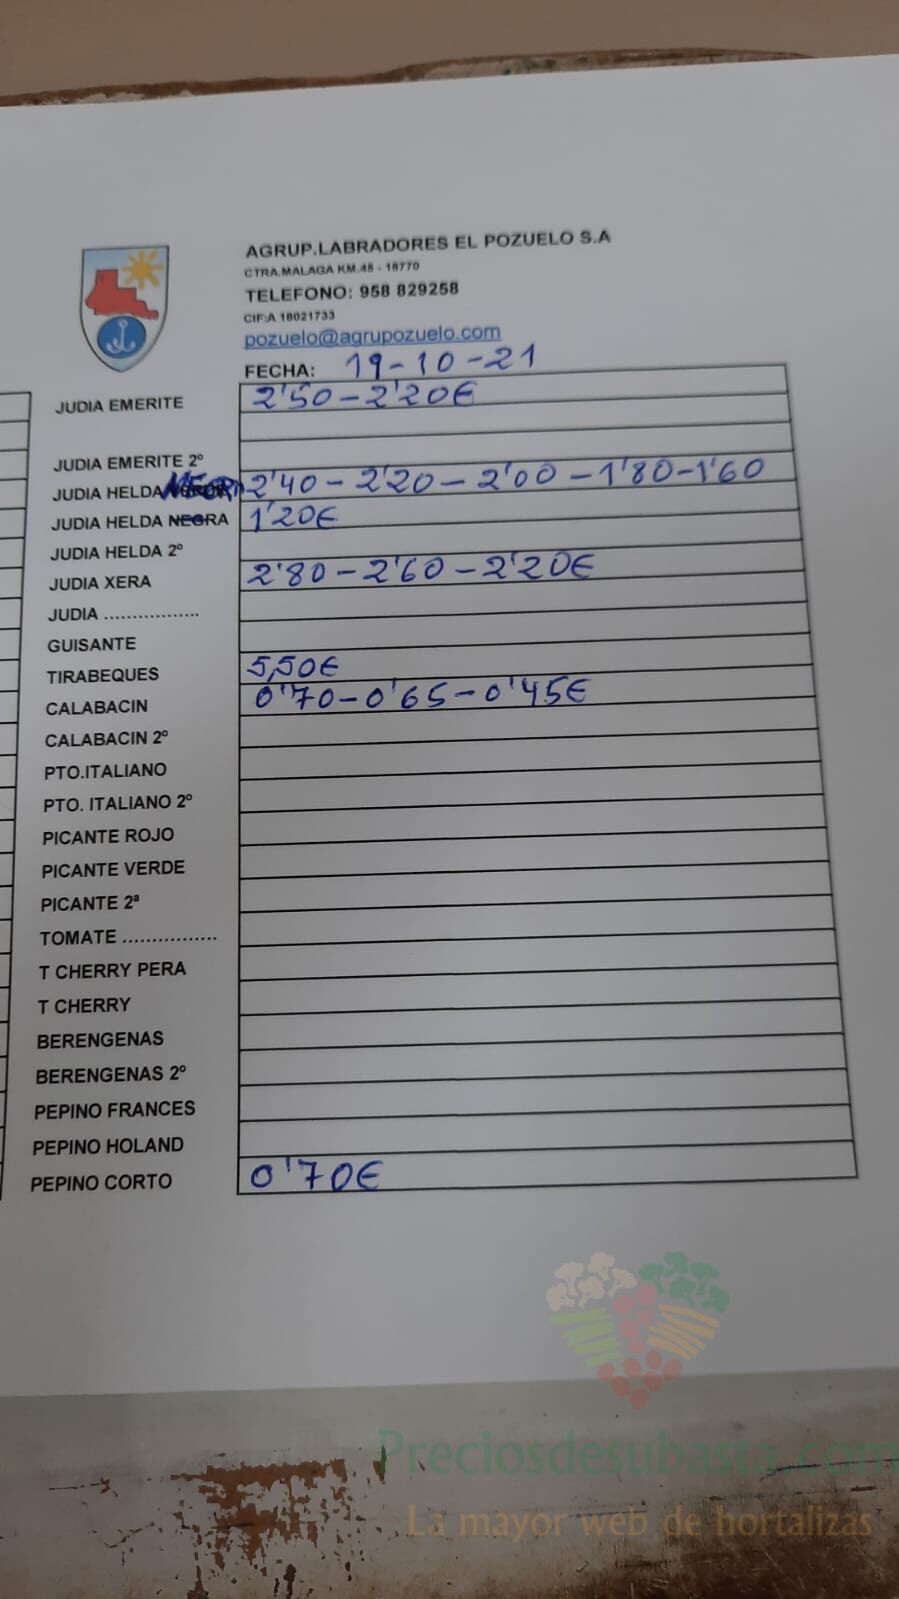 AGRUP.LABRADORES EL POZUELO S.A
CTRA.MALAGA KM.45 - 18770
TELEFONO: 958 829258
CIF:A 18021733
pozuelo@agrupozuelo.com
FECHA: 19-10-21
JUDIA EMERITE 2'50-2'20€
JUDIA EMERITE 2º
JUDIA HELDA NEGRA 2'40-2'20-2'00-1'80-1'60
JUDIA HELDA NEGRA 1'20€
JUDIA HELDA 2º
JUDIA XERA 2'80-2'60-2'20€
JUDIA .................
GUISANTE
TIRABEQUES 5,50€
CALABACIN 0'70-0'65-0'45€
CALABACIN 2º
PTO.ITALIANO
PTO. ITALIANO 2º
PICANTE ROJO
PICANTE VERDE
PICANTE 2ª
TOMATE ................
T CHERRY PERA
T CHERRY
BERENGENAS
BERENGENAS 2º
PEPINO FRANCES
PEPINO HOLAND
PEPINO CORTO 0'70€
Preciosdesubasta.com
La mayor web de hortalizas